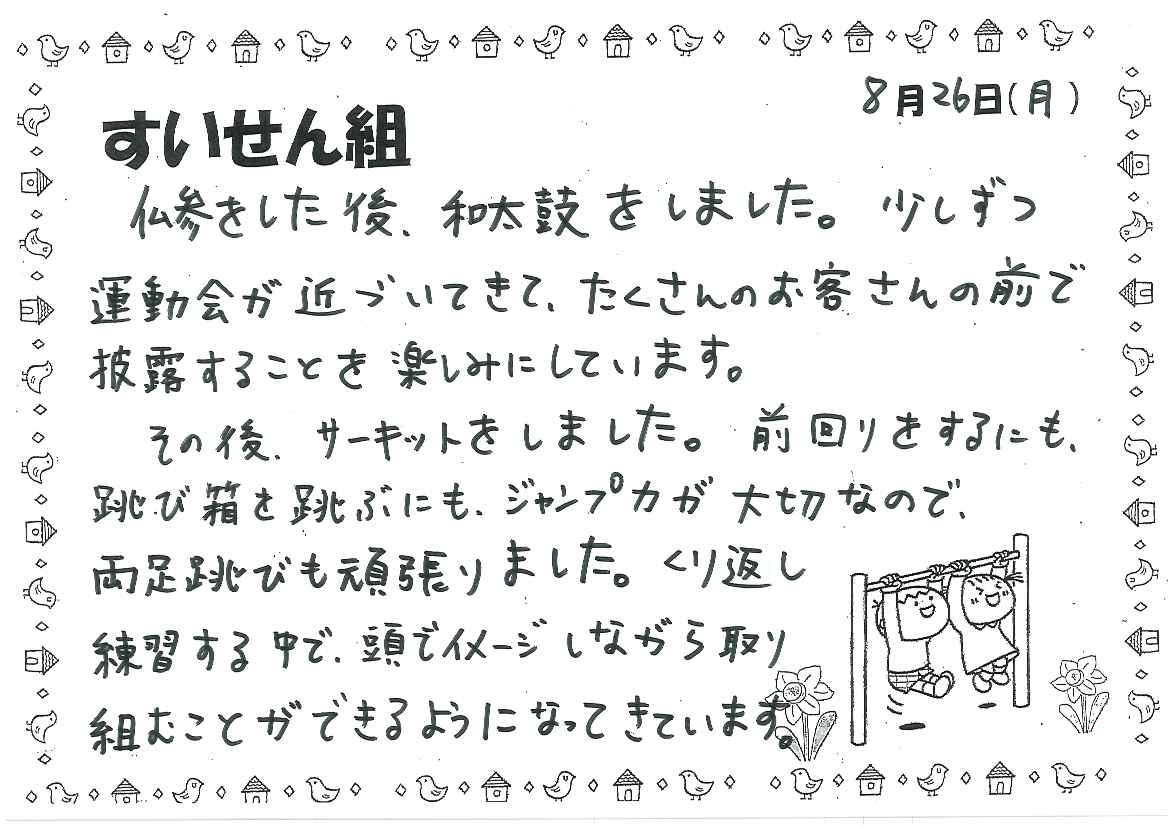 8月26日(月)
すいせん組
仏参をした後、和太鼓をしました。少しずつ
運動会が近づいてきて、たくさんのお客さんの前で
披露することを楽しみにしています。
その後、サーキットをしました。前回りをするにも、
跳び箱を跳ぶにも、ジャンプ力が大切なので、
両足跳びも頑張りました。くり返し
練習する中で、頭でイメージしながら取り
組むことができるようになってきています。